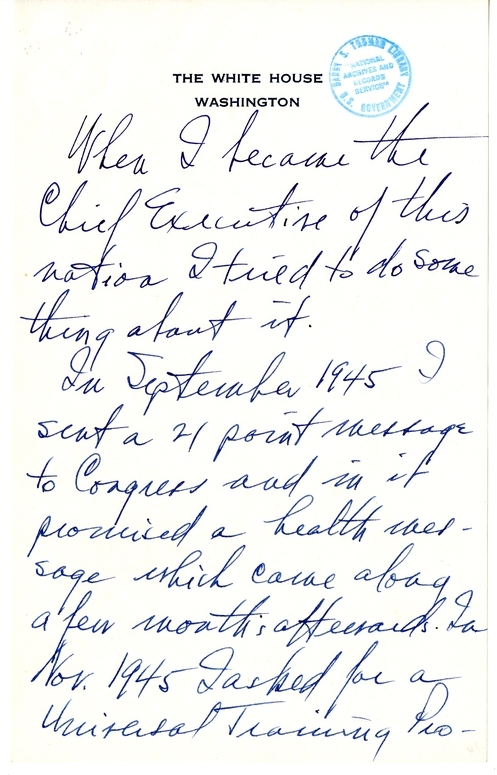 THE WHITE HOUSE
WASHINGTON
HARRY S. TRUMAN LIBRARY
NATIONAL
ARCHIVES AND
RECORDS
SERVICE
U.S. GOVERNMENT
When I became the
Chief Executive of this
nation I tried to do some
thing about it.
In September 1945 I
sent a 21 point message
to Congress and in it
promised a health mes-
sage which came along
a few months afterwards. In
Nov. 1945 I asked for a
Universal Training Pro-